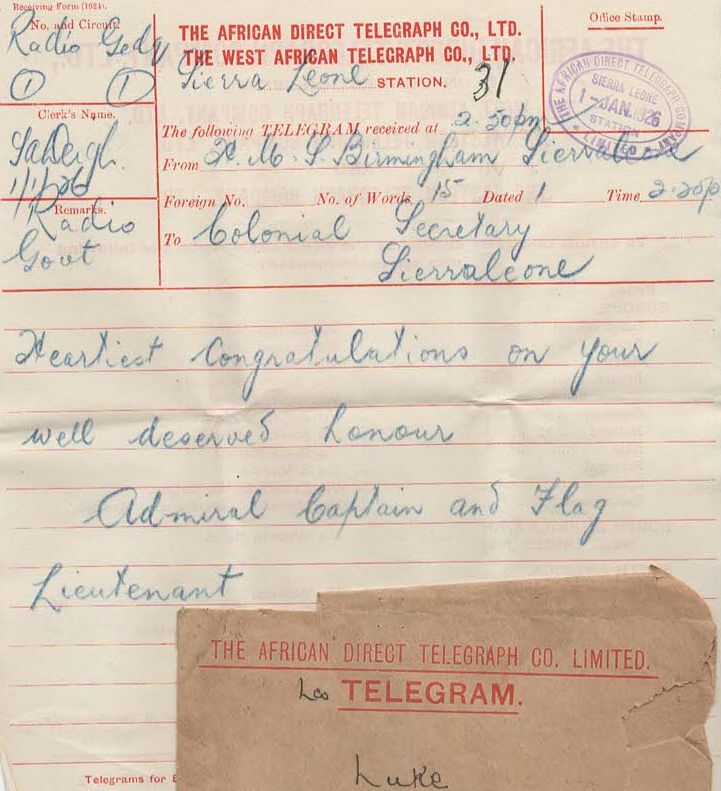 Receiving Form (1924).
No. and Circuit.
Radio Gedy
1 1
THE AFRICAN DIRECT TELEGRAPH CO., LTD.
THE WEST AFRICAN TELEGRAPH CO., LTD.
Sierra Leone STATION.
31
Office Stamp.
THE AFRICAN DIRECT TELEGRAPH COMPANY LIMITED
SIERRA LEONE
1-JAN.1926
STATION
Clerk's Name.
1/1/26
The following TELEGRAM received at 2.30pm
From H.M.S. Birmingham Sierraleone
Foreign No. No. of Words 15 Dated 1 Time 2.20p
Remarks.
Radio
Govt
To Colonial Secretary
Sierraleone
Heartiest congratulations on your
well deserved honour
Admiral Captain and Flag
Lieutenant
THE AFRICAN DIRECT TELEGRAPH CO. LIMITED.
TELEGRAM.
Luke
Telegrams for